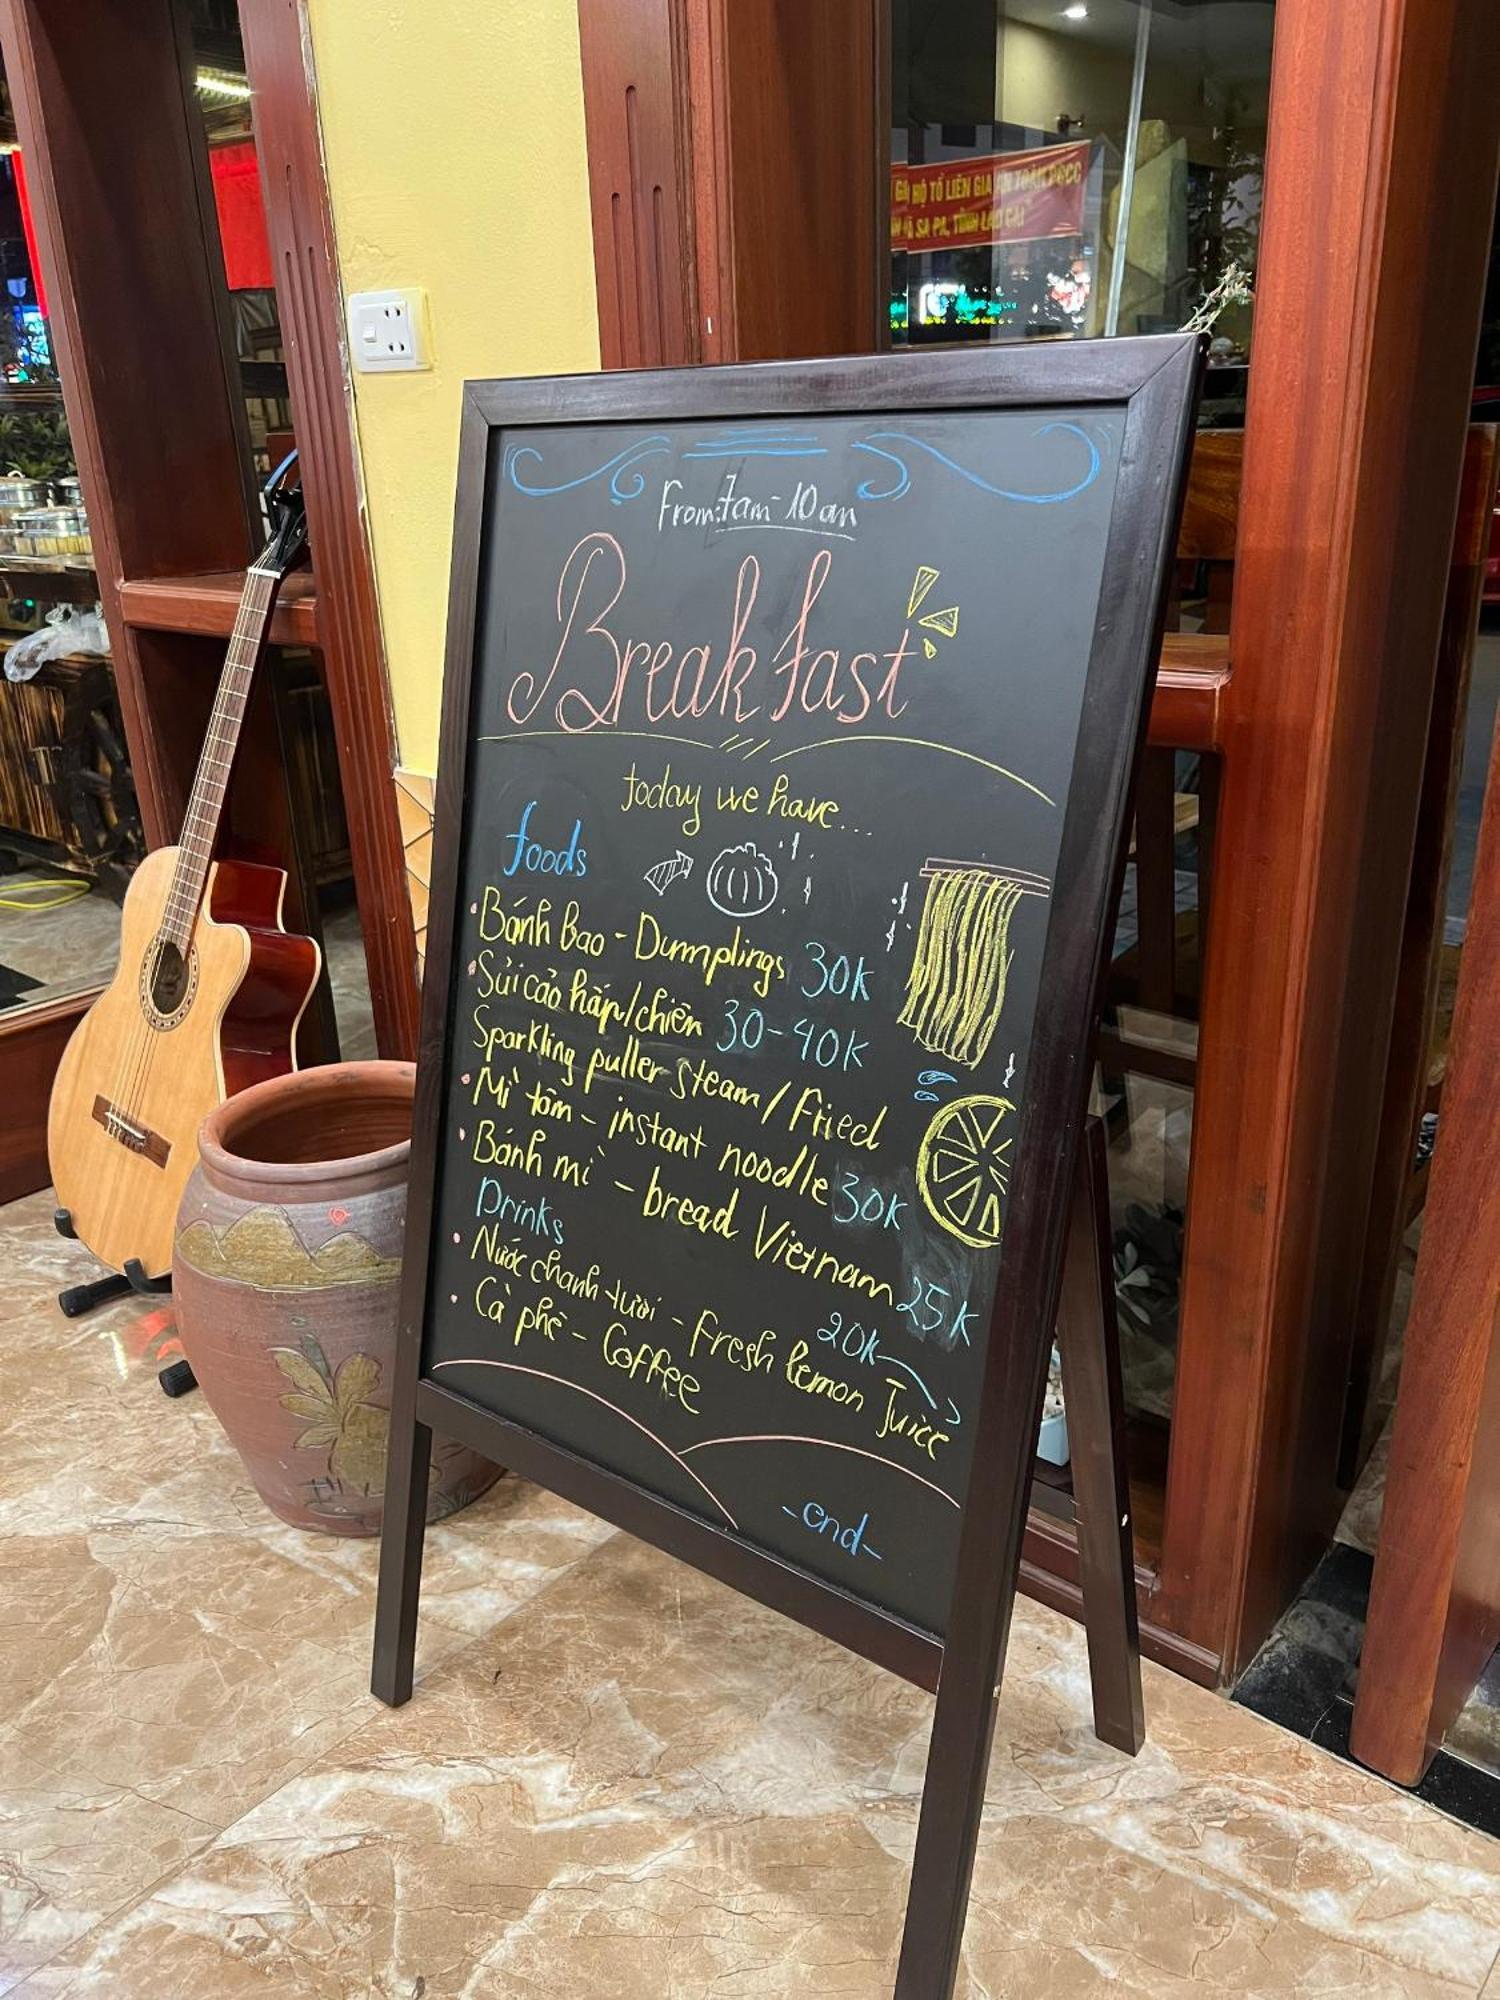 GIỚ HỘ TỔ LIÊN GIA AN TOÀN PCCC
SA PA, TỈNH LÀO CAI
From: 7am - 10 am
Breakfast
today we have...
foods
Bánh bao - Dumplings 30K
Sủi cảo hấp/chiên 30-40K
Sparkling puller steam / Fried
Mì tôm - instant noodle 30K
Bánh mì - bread Vietnam 25K
Drinks
Nước chanh tươi - Fresh lemon Juice 20K
Cà phê - Coffee
-end-